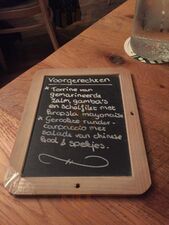 Voorgerechten
* Terrine van
gemarineerde
zalm, gamba's
en schelfilet met
kropsla mayonaise
* Gerookte runder-
carpaccio met
salade van chinese
kool & spekjes.